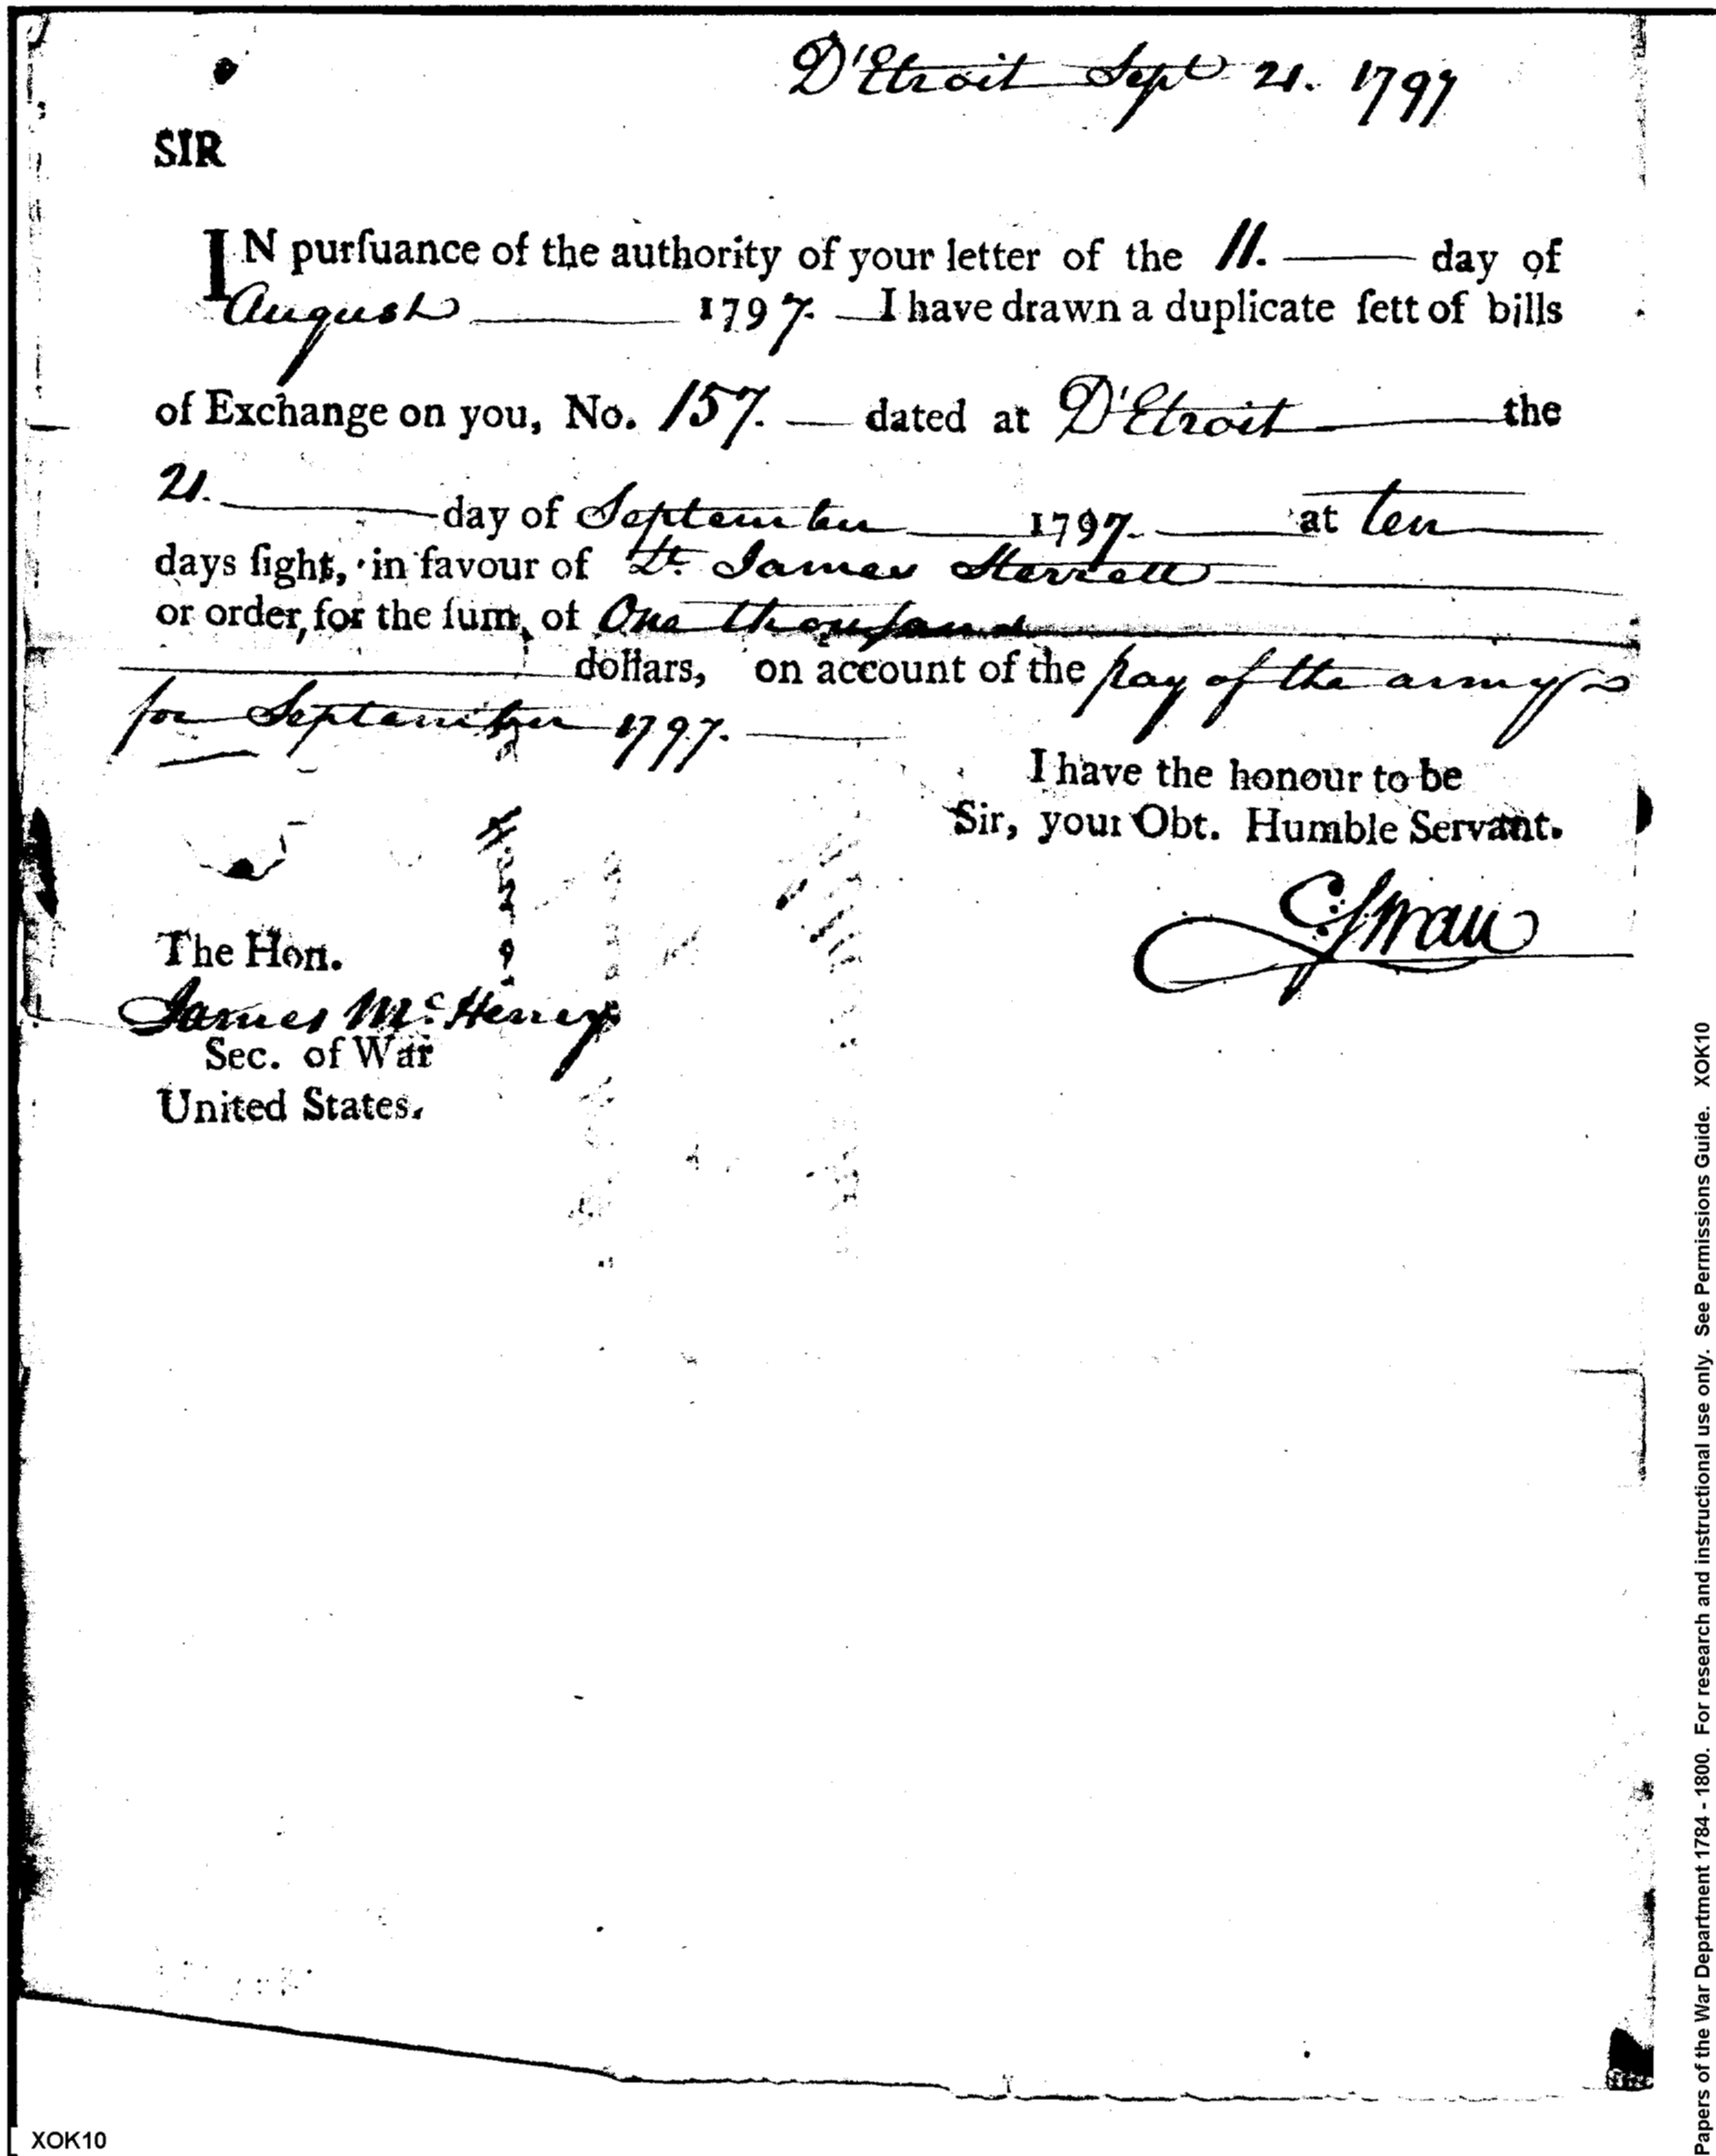 D'Etroit Sept 21. 1797
SIR
IN purſuance of the authority of your letter of the 11. day of
August 1797. I have drawn a duplicate ſett of bills
of Exchange on you, No. 157. dated at D'Etroit the
21. day of September 1797. at ten
days ſight, in favour of Lt. James Sterrett
or order, for the ſum, of One thouſand
dollars, on account of the pay of the army
for September 1797.
I have the honour to be
Sir, your Obt. Humble Servant.
C. Swan
The Hon.
James McHenry
Sec. of War
United States.
XOK10
Papers of the War Department 1784 - 1800. For research and instructional use only. See Permissions Guide. XOK10